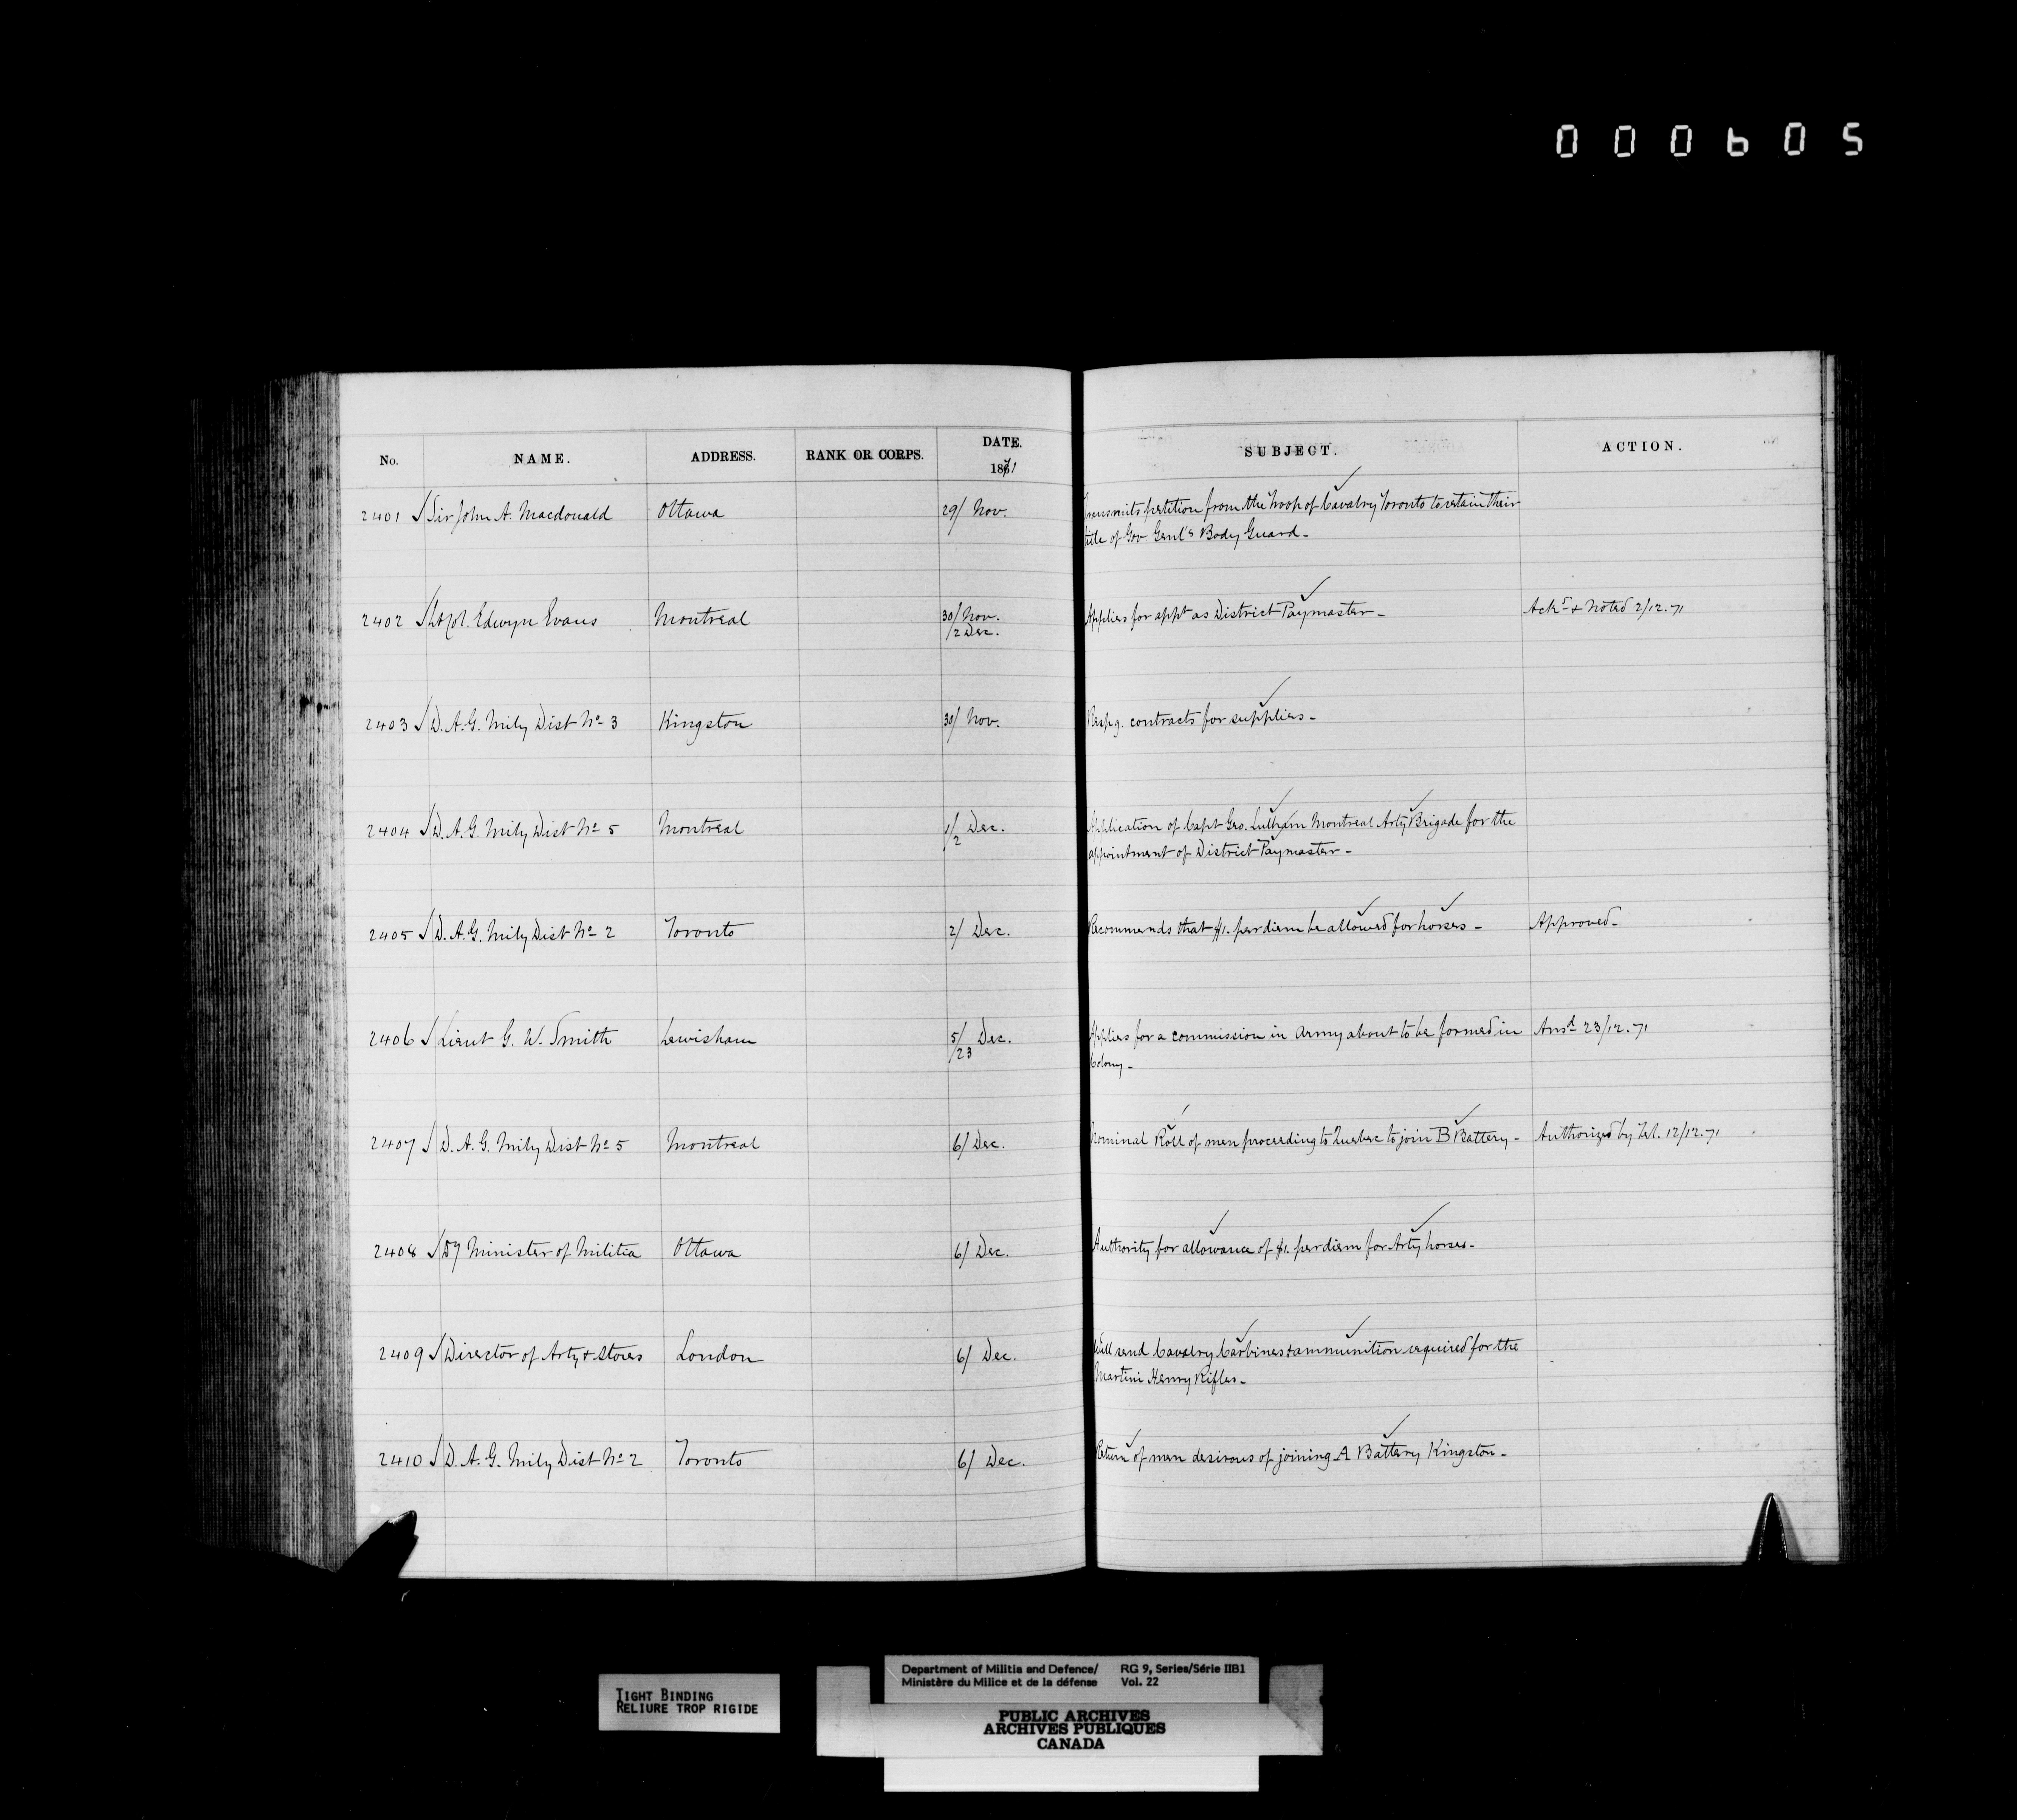 000605
No. NAME. ADDRESS. RANK OR CORPS. DATE. SUBJECT. ACTION.
1871
2401 Sir John A. Macdonald Ottawa 29/ Nov. Transmits petition from the Troop of Cavalry Toronto to retain their
title of Gov Genl's Body Guard -
2402 Lt Col. Edwyn Evans Montreal 30/ Nov. Applies for appt as District Paymaster - Ackd & Noted 2/12.71
/2 Dec.
2403 D. A. G. Mily Dist No 3 Kingston 30/ Nov. Respg. contracts for supplies -
2404 D. A. G. Mily Dist No 5 Montreal 1/ Dec. Application of Capt Geo. Lulham Montreal Arty Brigade for the
/2 appointment of District Paymaster -
2405 D. A. G. Mily Dist No 2 Toronto 2/ Dec. Recommends that $1. per diem be allowed for horses - Approved -
2406 Lieut G. W. Smith Lewisham 5/ Dec. Applies for a commission in Army about to be formed in Ansd 23/12.71
/23 Colony -
2407 D. A. G. Mily Dist No 5 Montreal 6/ Dec. Nominal Roll of men proceeding to Quebec to join B Battery - Authorized by Tel. 12/12.71
2408 Dy Minister of Militia Ottawa 6/ Dec. Authority for allowance of $1. per diem for Arty horses -
2409 Director of Arty & Stores London 6/ Dec. Will send Cavalry Carbines & ammunition required for the
Martini Henry Rifles -
2410 D. A. G. Mily Dist No 2 Toronto 6/ Dec. Return of men desirous of joining A Battery Kingston -
TIGHT BINDING
RELIURE TROP RIGIDE
Department of Militia and Defence/ RG 9, Series/Série IIB1
Ministère du Milice et de la défense Vol. 22
PUBLIC ARCHIVES
ARCHIVES PUBLIQUES
CANADA